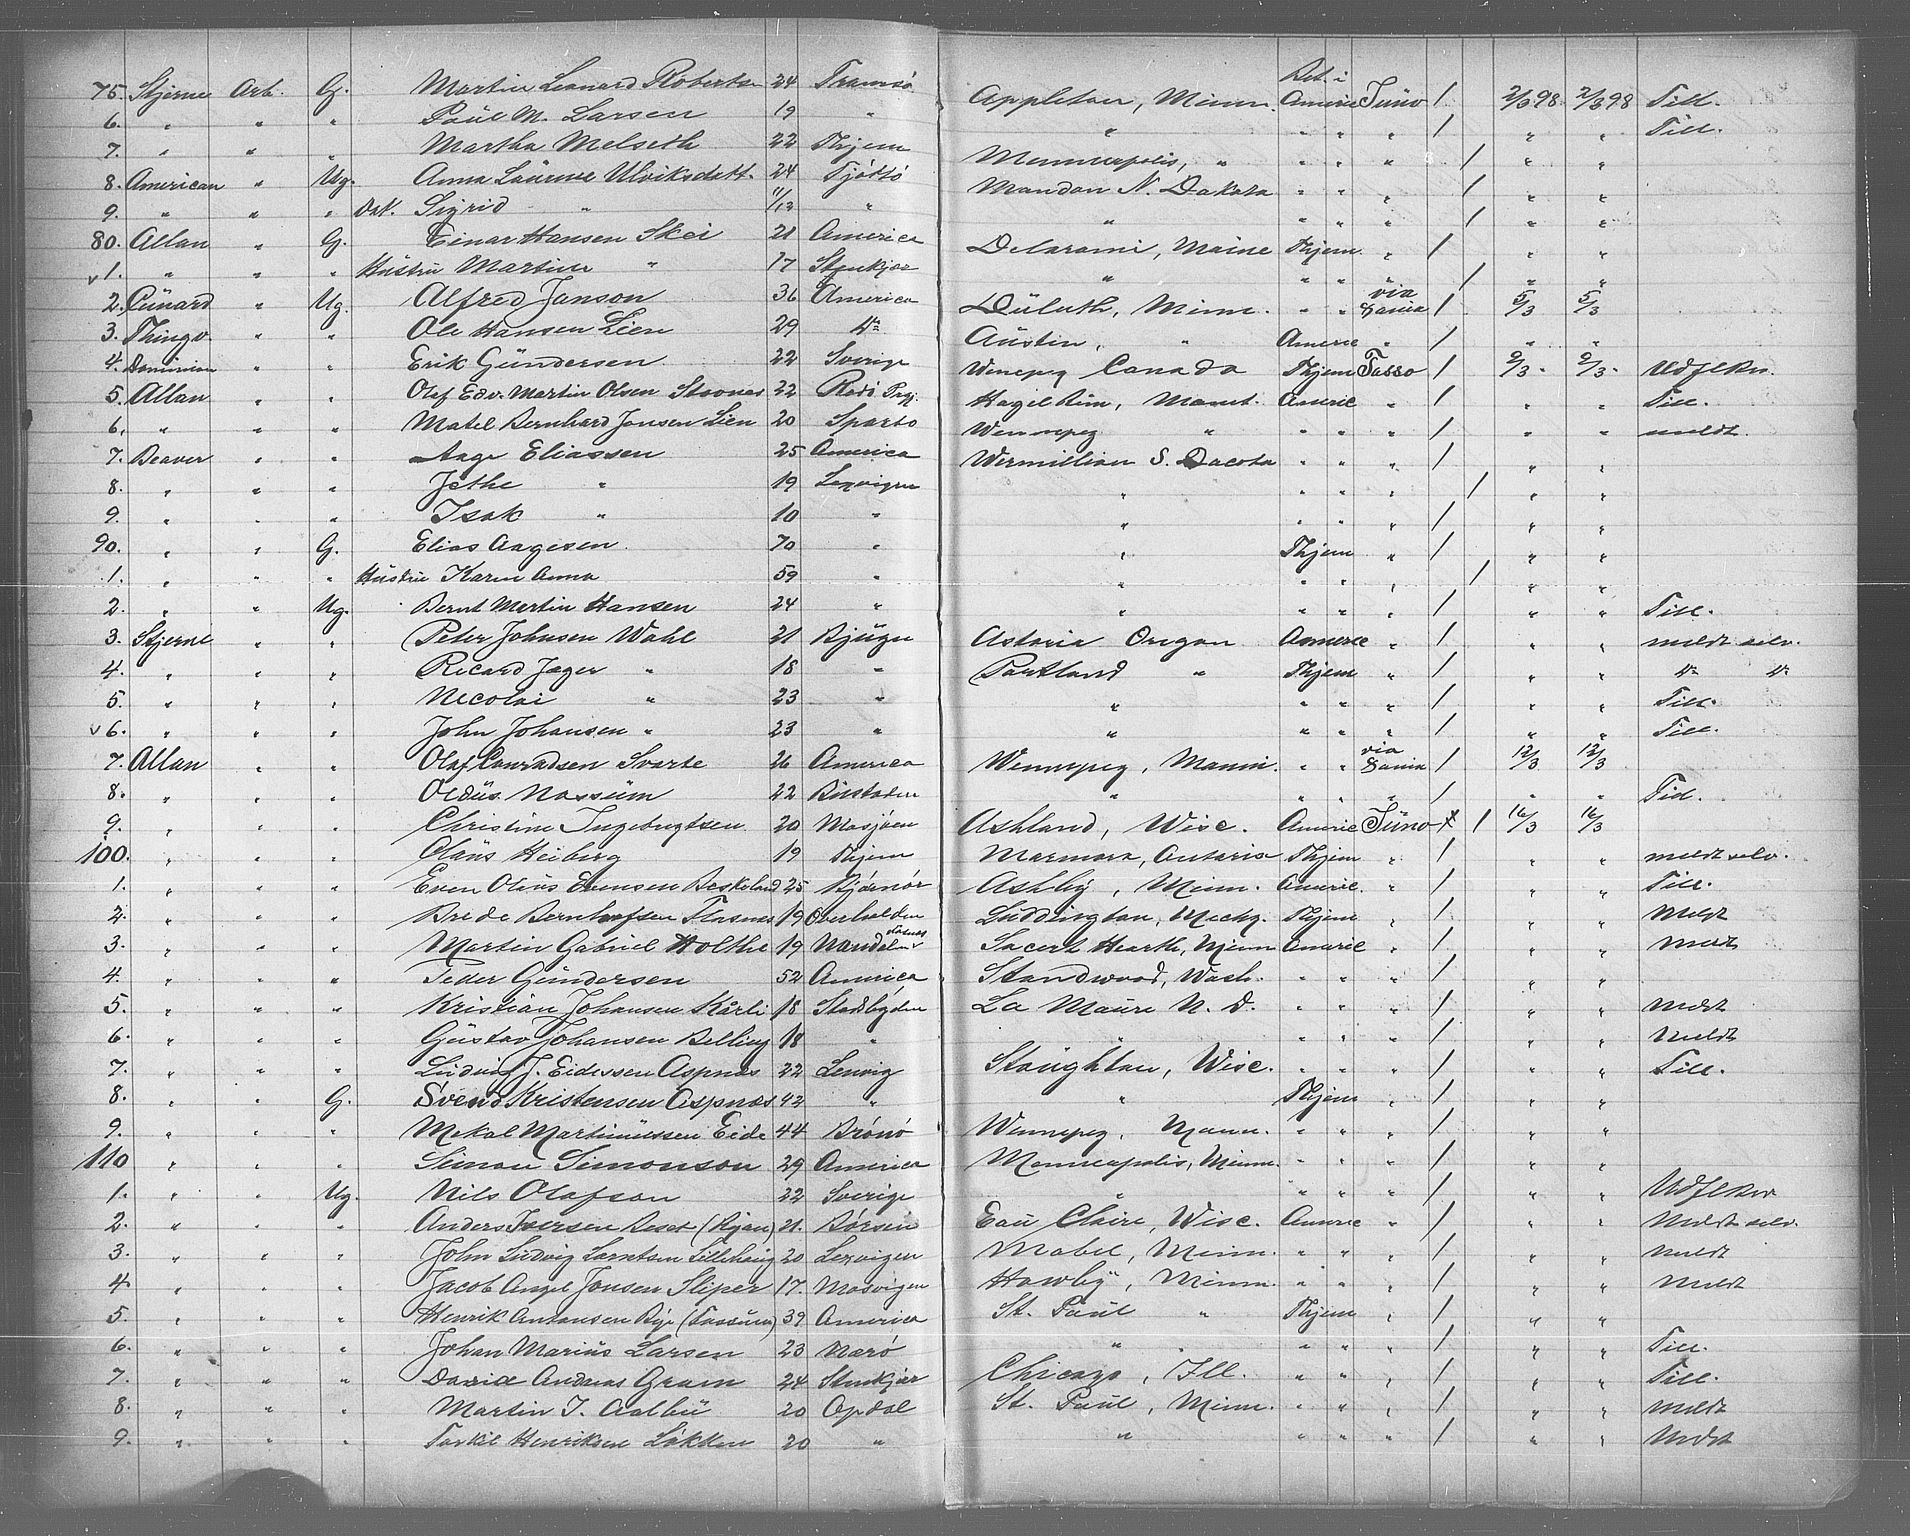 75. Stjerne Arb. G. Martin Leonard Roberts 24 Tromsø Appleton, Minn Bet. i Americ Juno / 2/3 98 2/3 98 Till.
6. " " " Paul M. Larsen 19 " " " " " / " " Till.
7. " " " Martha Melseth 22 Thjem Menneapolis, " " " " / " "
8. American " Ug. Anna Laurine Ulviksdatt. 24 Tjøttø Mandan N. Dakota " " " / " "
9. " " " Dat. Sigrid " 11/12 " " " " " / " "
80. Allan " G. Einar Hansen Skei 21 America Maine Thjem " / " "
v 1. " " " Hustru Martine " 17 Stenkjær " " " " / " "
2. Cunard " Ug. Alfred Janson 36 America Duluth, Minn. " " via Dania / 5/3 5/3
3. Thingv. " " Ole Hansen Lien 29 do Austin, " Americ " " / " "
4. Dominion " " Erik Gundersen 22 Sverige Wenepeg Canada Thjem Tasso / 9/3 9/3 Udfl Kr.
5. Allan " " Olaf Edv. Martin Olsen 22 Rødø Prg. Americ " / " " Till.
6. " " " Matel Bernhard Jonsen Lien 20 Sparbo Wennepeg " " " " / " " meldt.
7. Beaver " " Aage Eliassen 25 America Wermillian S. Dacota " " " / " "
8. " " " Jethe " 19 Lexvigen " " " " / " "
9. " " " Isak " 10 " " " " " / " "
90. " " G. Elias Aagesen 70 " " Thjem " / " "
1. " " " Hustru Karen Anna 59 " " " " " / " "
2. " " Ug. Bernt Martin Hansen 24 " " " " " / " " Till.
3. Stjerne " " Peter Johnsen Wahl 21 Bjugn Astoria Oregon Americ " / " " meldt selv.
4. " " " Ricard Jager " 18 " Portland " Thjem " / " " do do
5. " " " Nicolai " 23 " " " " " / " " Till.
v 6. " " " John Johansen " 23 " " " " " / " " Till.
7. Allan " " Olaf Conradsen Svarte 26 America Wennepeg, Mann. " " via Dania / 12/3 12/3
8. " " " Oldus Nossum 22 " " " " / " " Till.
9. " " " Christine Ingebrigtsen 20 Mosjøen Ashland, Wisc. Americ Juno x / 16/3 16/3
100. " " " Claus Heiberg 19 Thjem Marmora, Ontario Thjem " / " " meldt selv.
1. " " " Even Olaus Evensen Beskeland 25 Bjørnør Ashby, Minn. Americ. " / " " Till.
2. " " " Brede Bernhofsen Flasnes 19 Overhalden Luddington, Mechg. Thjem " / " " Meldt
3. " " " Martin Gabriel Holthe 19 Sacert Hearth, Minn Americ " / " " meldt
4. " " " Peder Gundersen 52 America Standwood, Wash. " " " / " "
5. " " " Kristian Johansen Kårli 18 Stadsbygden La Moure N. D. " " " / " " meldt
6. " " " Gustav Johansen Belling 18 " " " " " / " " meldt
7. " " " Ludvig J. Eidessen Aspnes 22 Lenvig Stoughton, Wisc. " " " / " " Till.
8. " " G. Svend Kristensen Aspnæs 42 " " Thjem " / " "
9. " " " Mekal Martinussen Eide 44 Brønø Wennepeg, Mann. " " " / " "
110 " " " Simon Simonson 29 America Menneapolis, Minn. " " " / " "
1. " " Ug. Nils Olafson 22 Sverige " " " " / " " Udfl Kr
2. " " " Anders Iversen Reset (Rjan) 21. Børsen Eau Claire, Wisc. Americ " / " " Meldt selv.
3. " " " John Ludvig Larntsen Lillehaug 20 Lexvigen Mabel, Minn. " " " / " " meldt
4 " " " Jacob Angel Jonsen Sliper 17. Mosvigen Hawley, Minn. " " " / " " meldt
5. " " " Henrik Antonsen Bye (Fossum) 39 America St. Paul " Thjem " / " "
6. " " " Johan Marius Larsen 23 Nærø " " " " / " " Till.
7. " " " Andreas Gram 24 Stenkjær Chicago, Ill. " " " / " " Till.
8. " " " Martin I. Aalbu 20 Opdal St. Paul, Minn. " " " / " " meldt
9. " " " Torkil Henriksen Løkken 20 " " " " " / " " Meldt